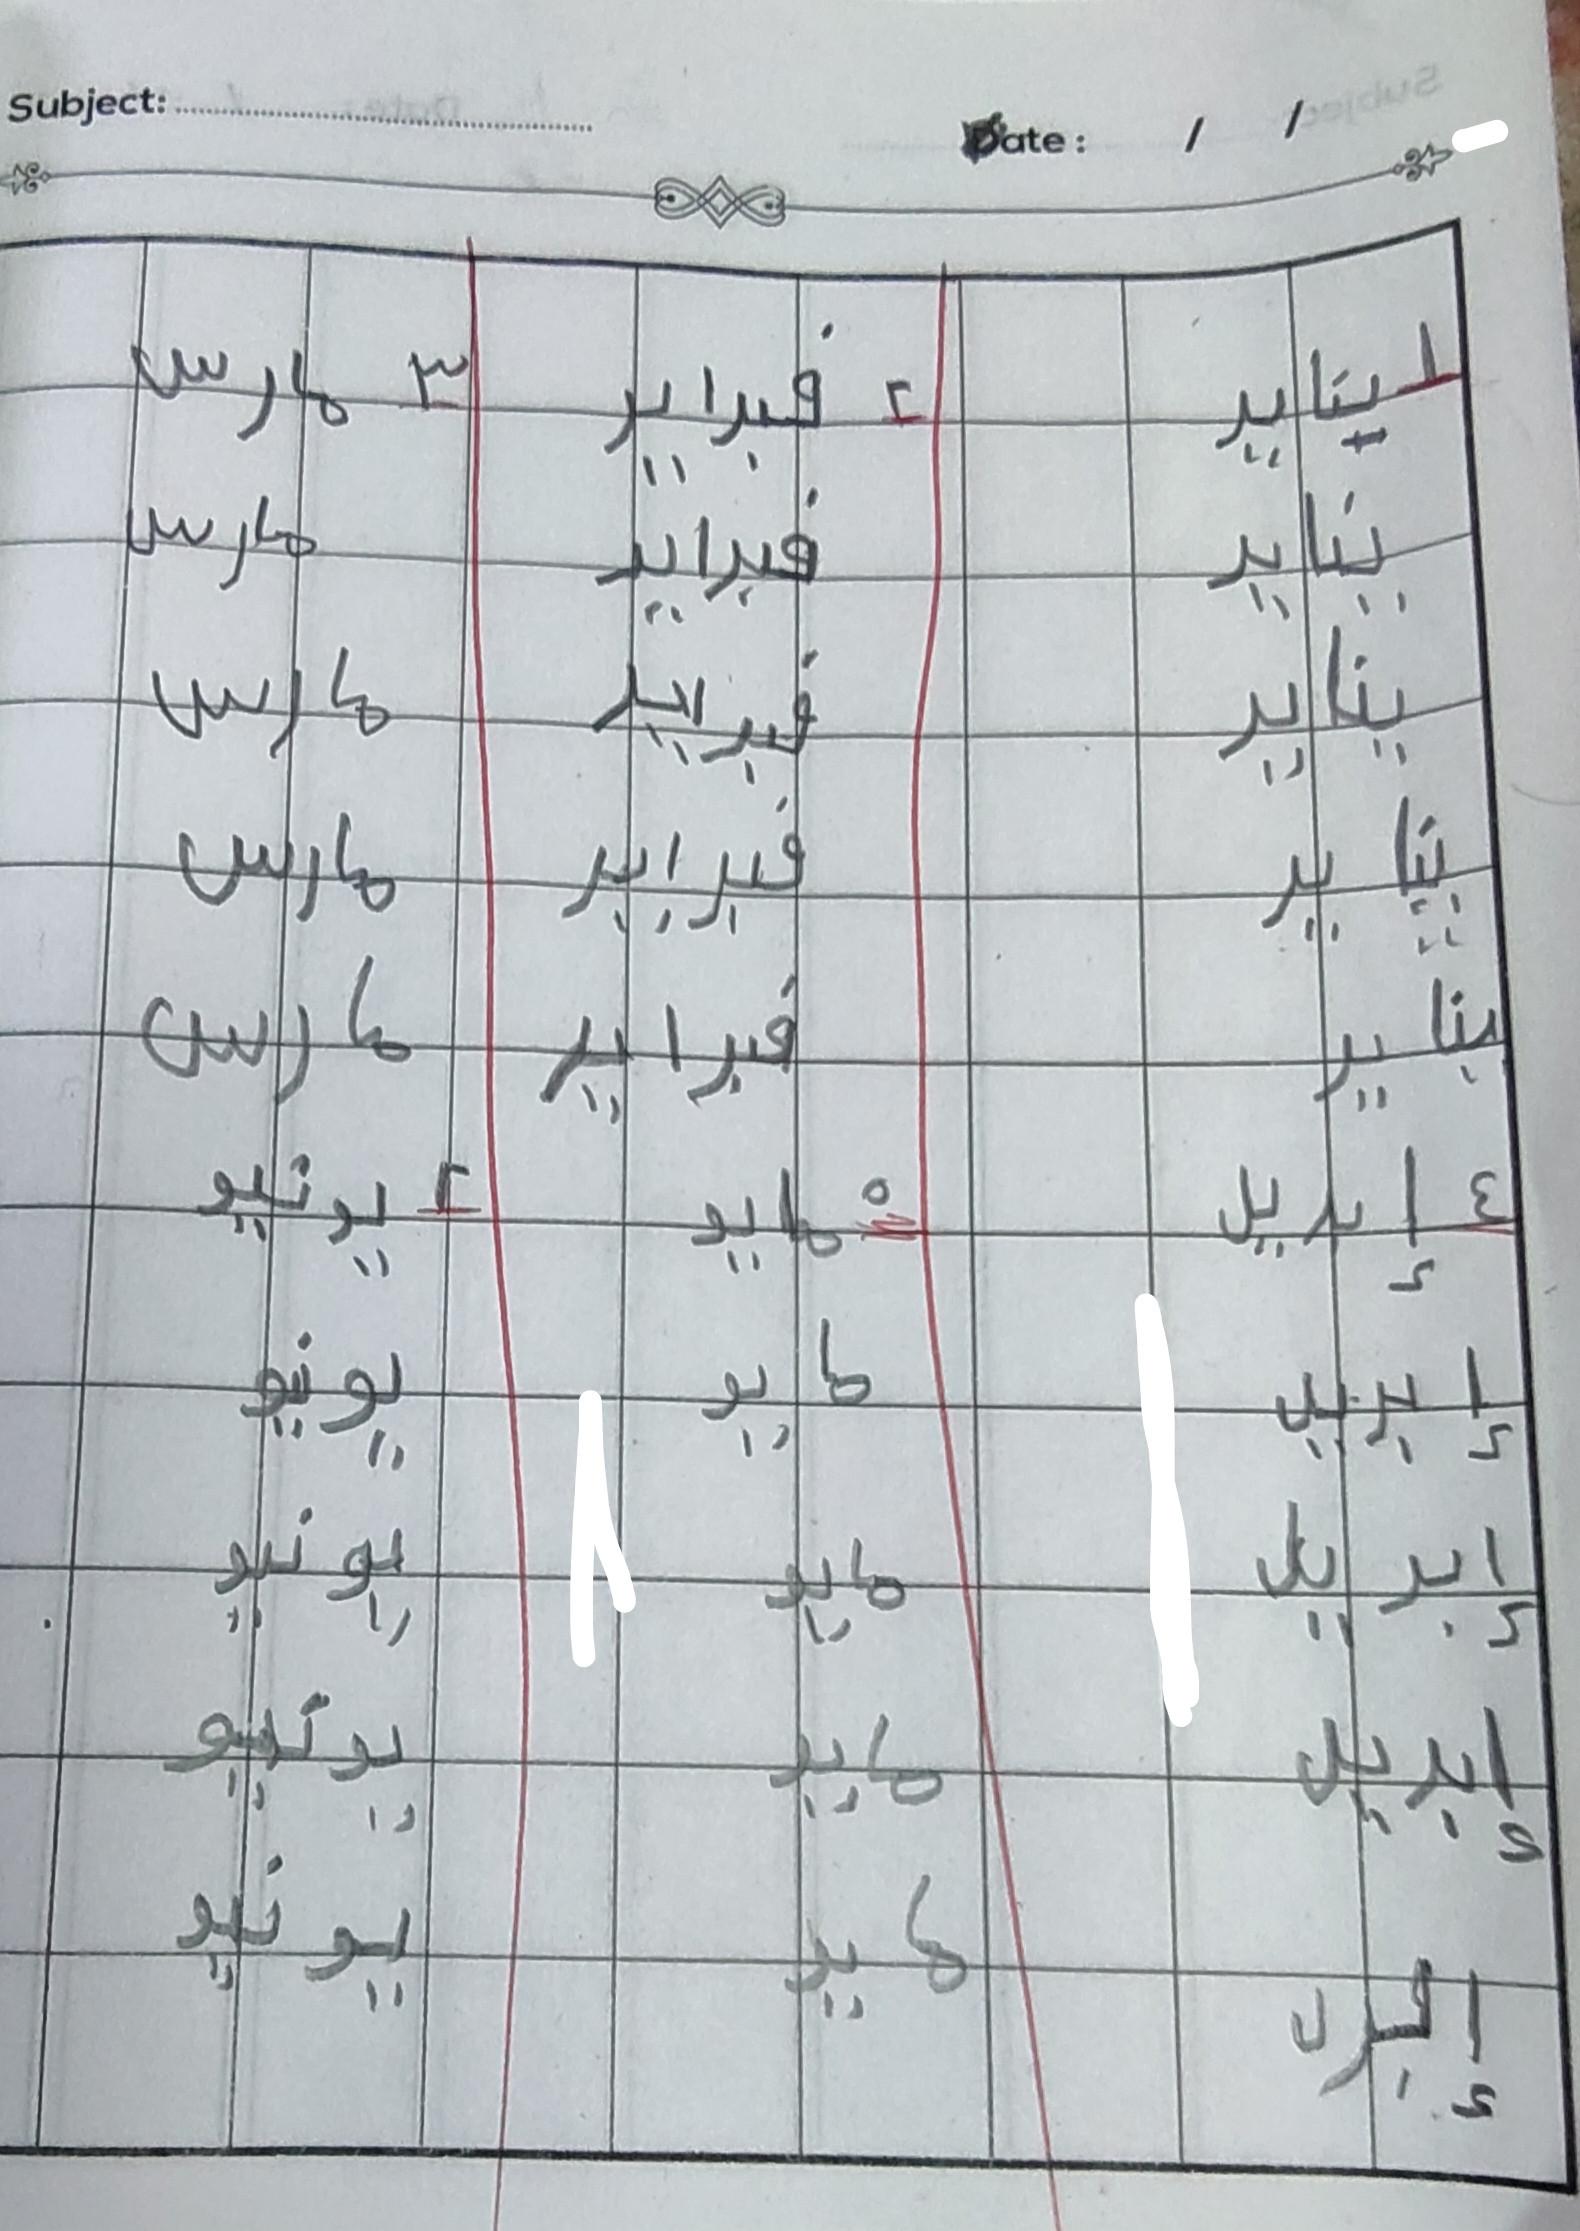 Subject: Date: / /
١ يناير ٢ فبراير ٣ مارس
يناير فبراير مارس
يناير فبراير مارس
يناير فبراير مارس
يناير فبراير مارس
٤ إبريل ٥ مايو ٦ يونيو
إبريل مايو يونيو
إبريل مايو يونيو
إبريل مايو يونيو
مايو يونيو